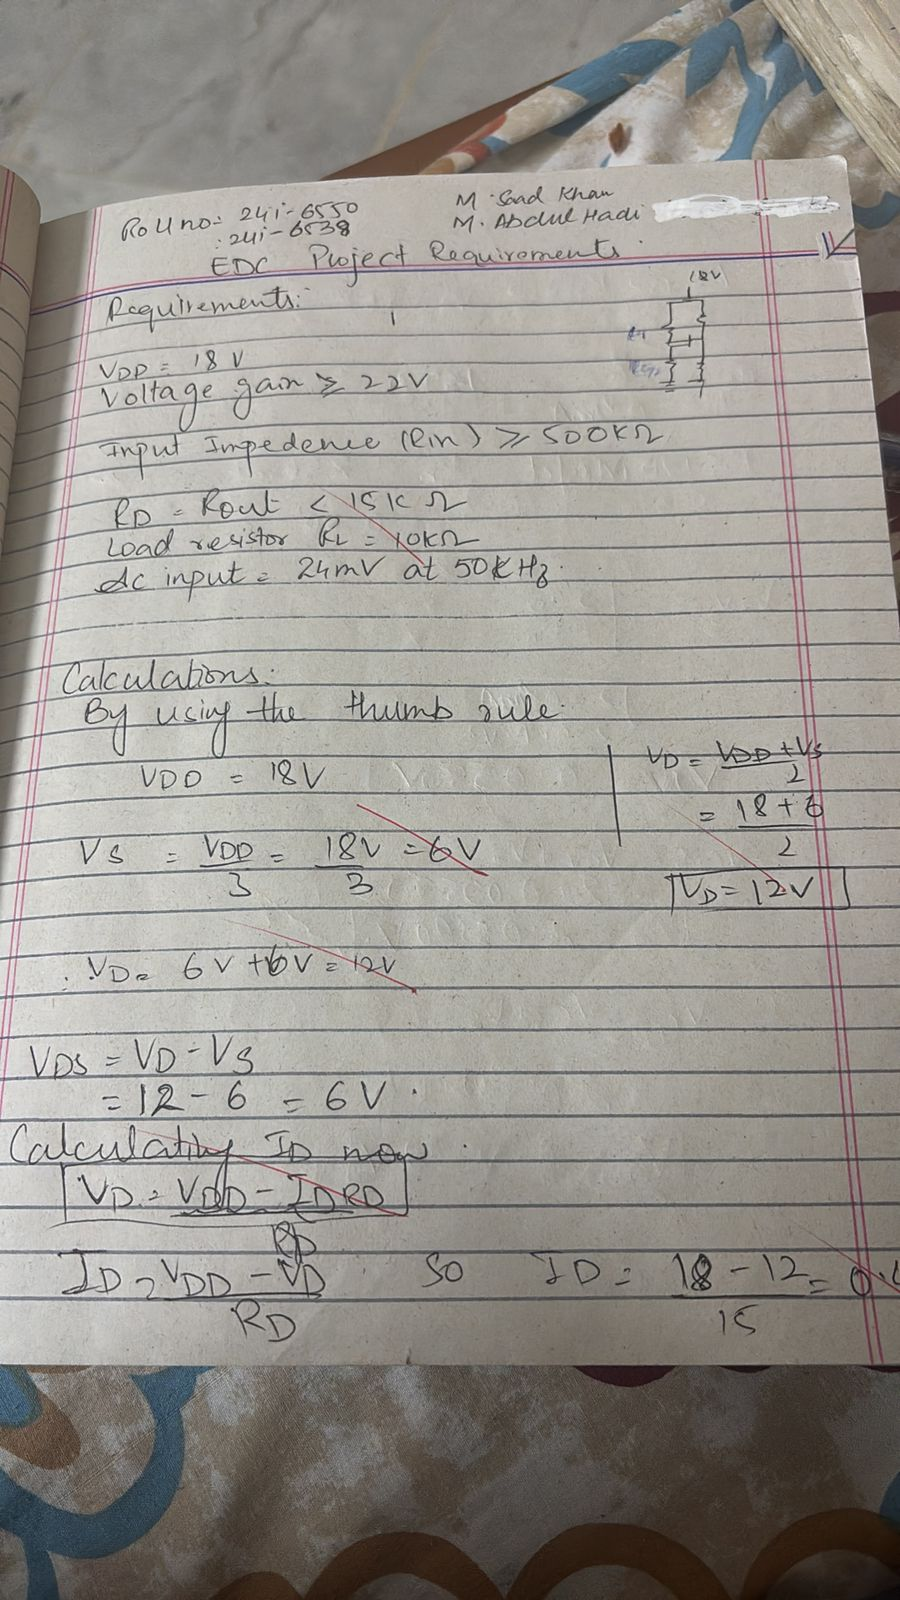 Roll no: 24i-6550
M. Saad Khan
: 24i-6538
M. Abdul Hadi
EDC Project Requirements.
Requirements:
18V
VDD = 18 V
Voltage gain ≥ 22V
Input Impedence (Rin) ≥ 500KΩ
RD = Rout < 15K Ω
Load resistor RL = 10KΩ
Ac input = 24mV at 50KHz.
Calculations:
By using the thumb rule.
VDD = 18V
VD = VDD + VS / 2
= 18 + 6 / 2
VS = VDD / 3 = 18V / 3 = 6V
VD = 12V
∴ VD = 6V + 6V = 12V
VDS = VD - VS
= 12 - 6 = 6V.
Calculating ID now.
VD = VDD - IDRD
RD
ID = VDD - VD / RD so ID = 18 - 12 / 15 = 0.